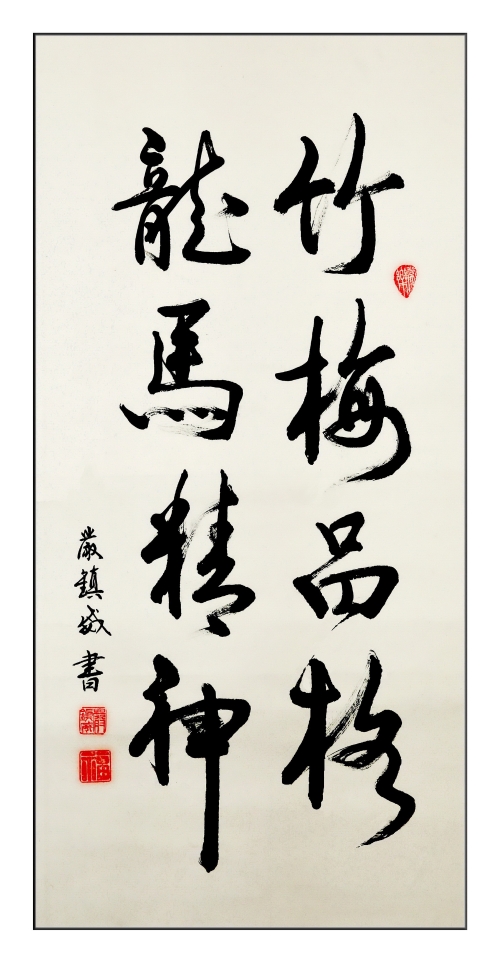 竹梅品格
龍馬精神
嚴鎮威書